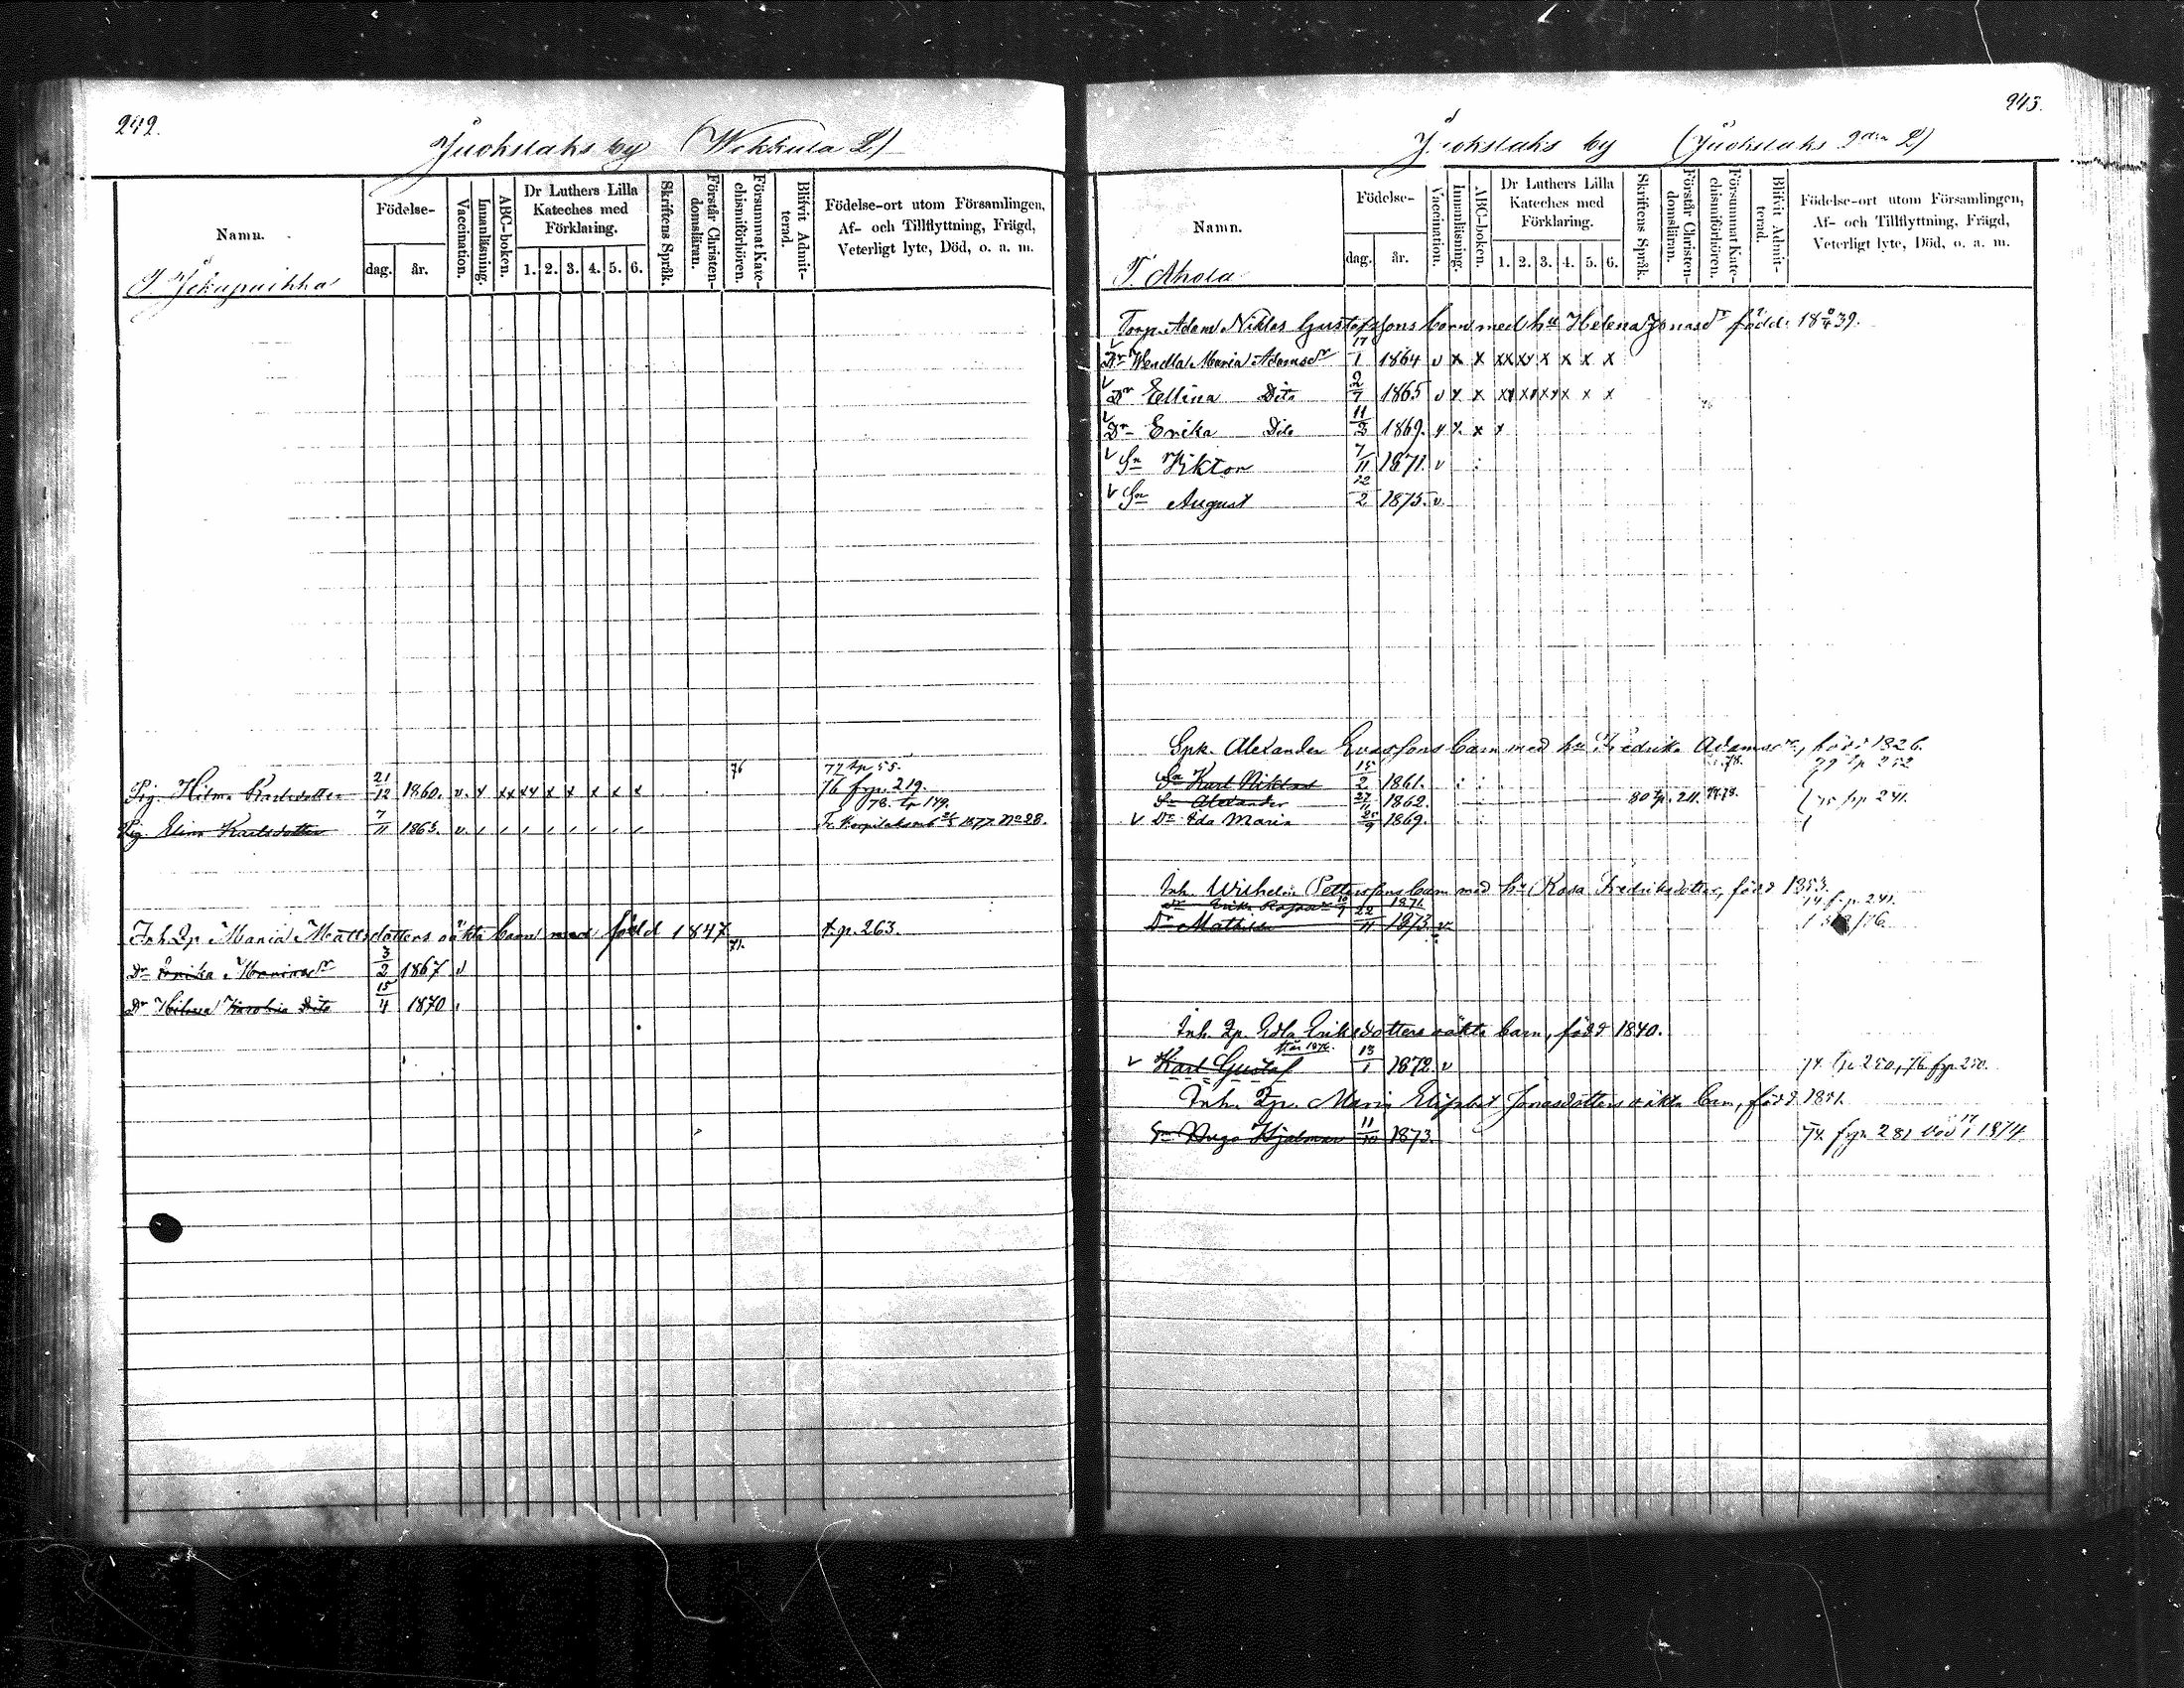 242.
Juokslaks by (Wekkula L)
Namn.
Födelse-
dag.
år.
Vaccination.
Innanläsning.
ABC-boken.
Dr Luthers Lilla
Kateches med
Förklaring.
1. 2. 3. 4. 5. 6.
Skriftens Språk.
Förstår Christen-
domsläran.
Försummat Kate-
chismiförhören.
Blifvit Admit-
terad.
Födelse-ort utom Församlingen,
Af- och Tillflyttning, Frägd,
Veterligt lyte, Död, o. a. m.
77 tp 55.
Pig. Hilma Karlsdotter 21/12 1860. v. x xx xy x x x x x 76 76 frp. 219.
78. tp 149.
Pig Elina Karlsdotter 7/11 1863. v.
1877. No 28.
Inh. Qp. Maria Mattsdotters oäkta barn med född 1847 t.p. 263.
71.
Dr Erika 3/2 1867 v
Dr Hilma Karolina Dito 15/4 1870
243.
Juokslaks by (Juokslaks 2dra L)
Namn.
Födelse-
dag.
år.
Vaccination.
Innanläsning.
ABC-boken.
Dr Luthers Lilla
Kateches med
Förklaring.
1. 2. 3. 4. 5. 6.
Skriftens Språk.
Förstår Christen-
domsläran.
Försummat Kate-
chismiförhören.
Blifvit Admit-
terad.
Födelse-ort utom Församlingen,
Af- och Tillflyttning, Frägd,
Veterligt lyte, Död, o. a. m.
T. Ahola
Torp. Adam Niklas Gustafssons barn med hu Helena Jonasdr född 18 39.
Dr Wendla Maria Adamsdr 17/1 1864 v x x xx xx x x x x
Dr Ellina Dito 2/7 1865 v x x
Dr Erika Dito 11/3 1869. x x x x
Sn Viktor 7/11 1871. v
Sn August 12/2 1875. v.
Spk. Alexander Evassons barn med hu Fredrika Adamsdr, född 1826.
78. 79 tp 252
Sn Karl Niklas 15/2 1861.
Sn Alexander 27/11 1862. 80 tp. 211. 75 frp 241.
Dr Ida Maria 25/9 1869.
Inh. Wilhelm Petterssons barn med hu Rosa Fredriksdotter, född 1853.
Dr Erika 1876 74 frp 241.
Dr Mathilda 22/11 1873. v.
Inh. Qp. Edla Eriksdotters oäkta barn, född 1840.
Karl Gustaf 13/1 1872. v 74. tp 250, 76 frp 250.
Inh. Qp. Maria Elisabet Jonasdotters oäkta barn, född 1851.
Sn Hugo Hjalmar 11/10 1873. 74. frp 281 död 17/1 1874